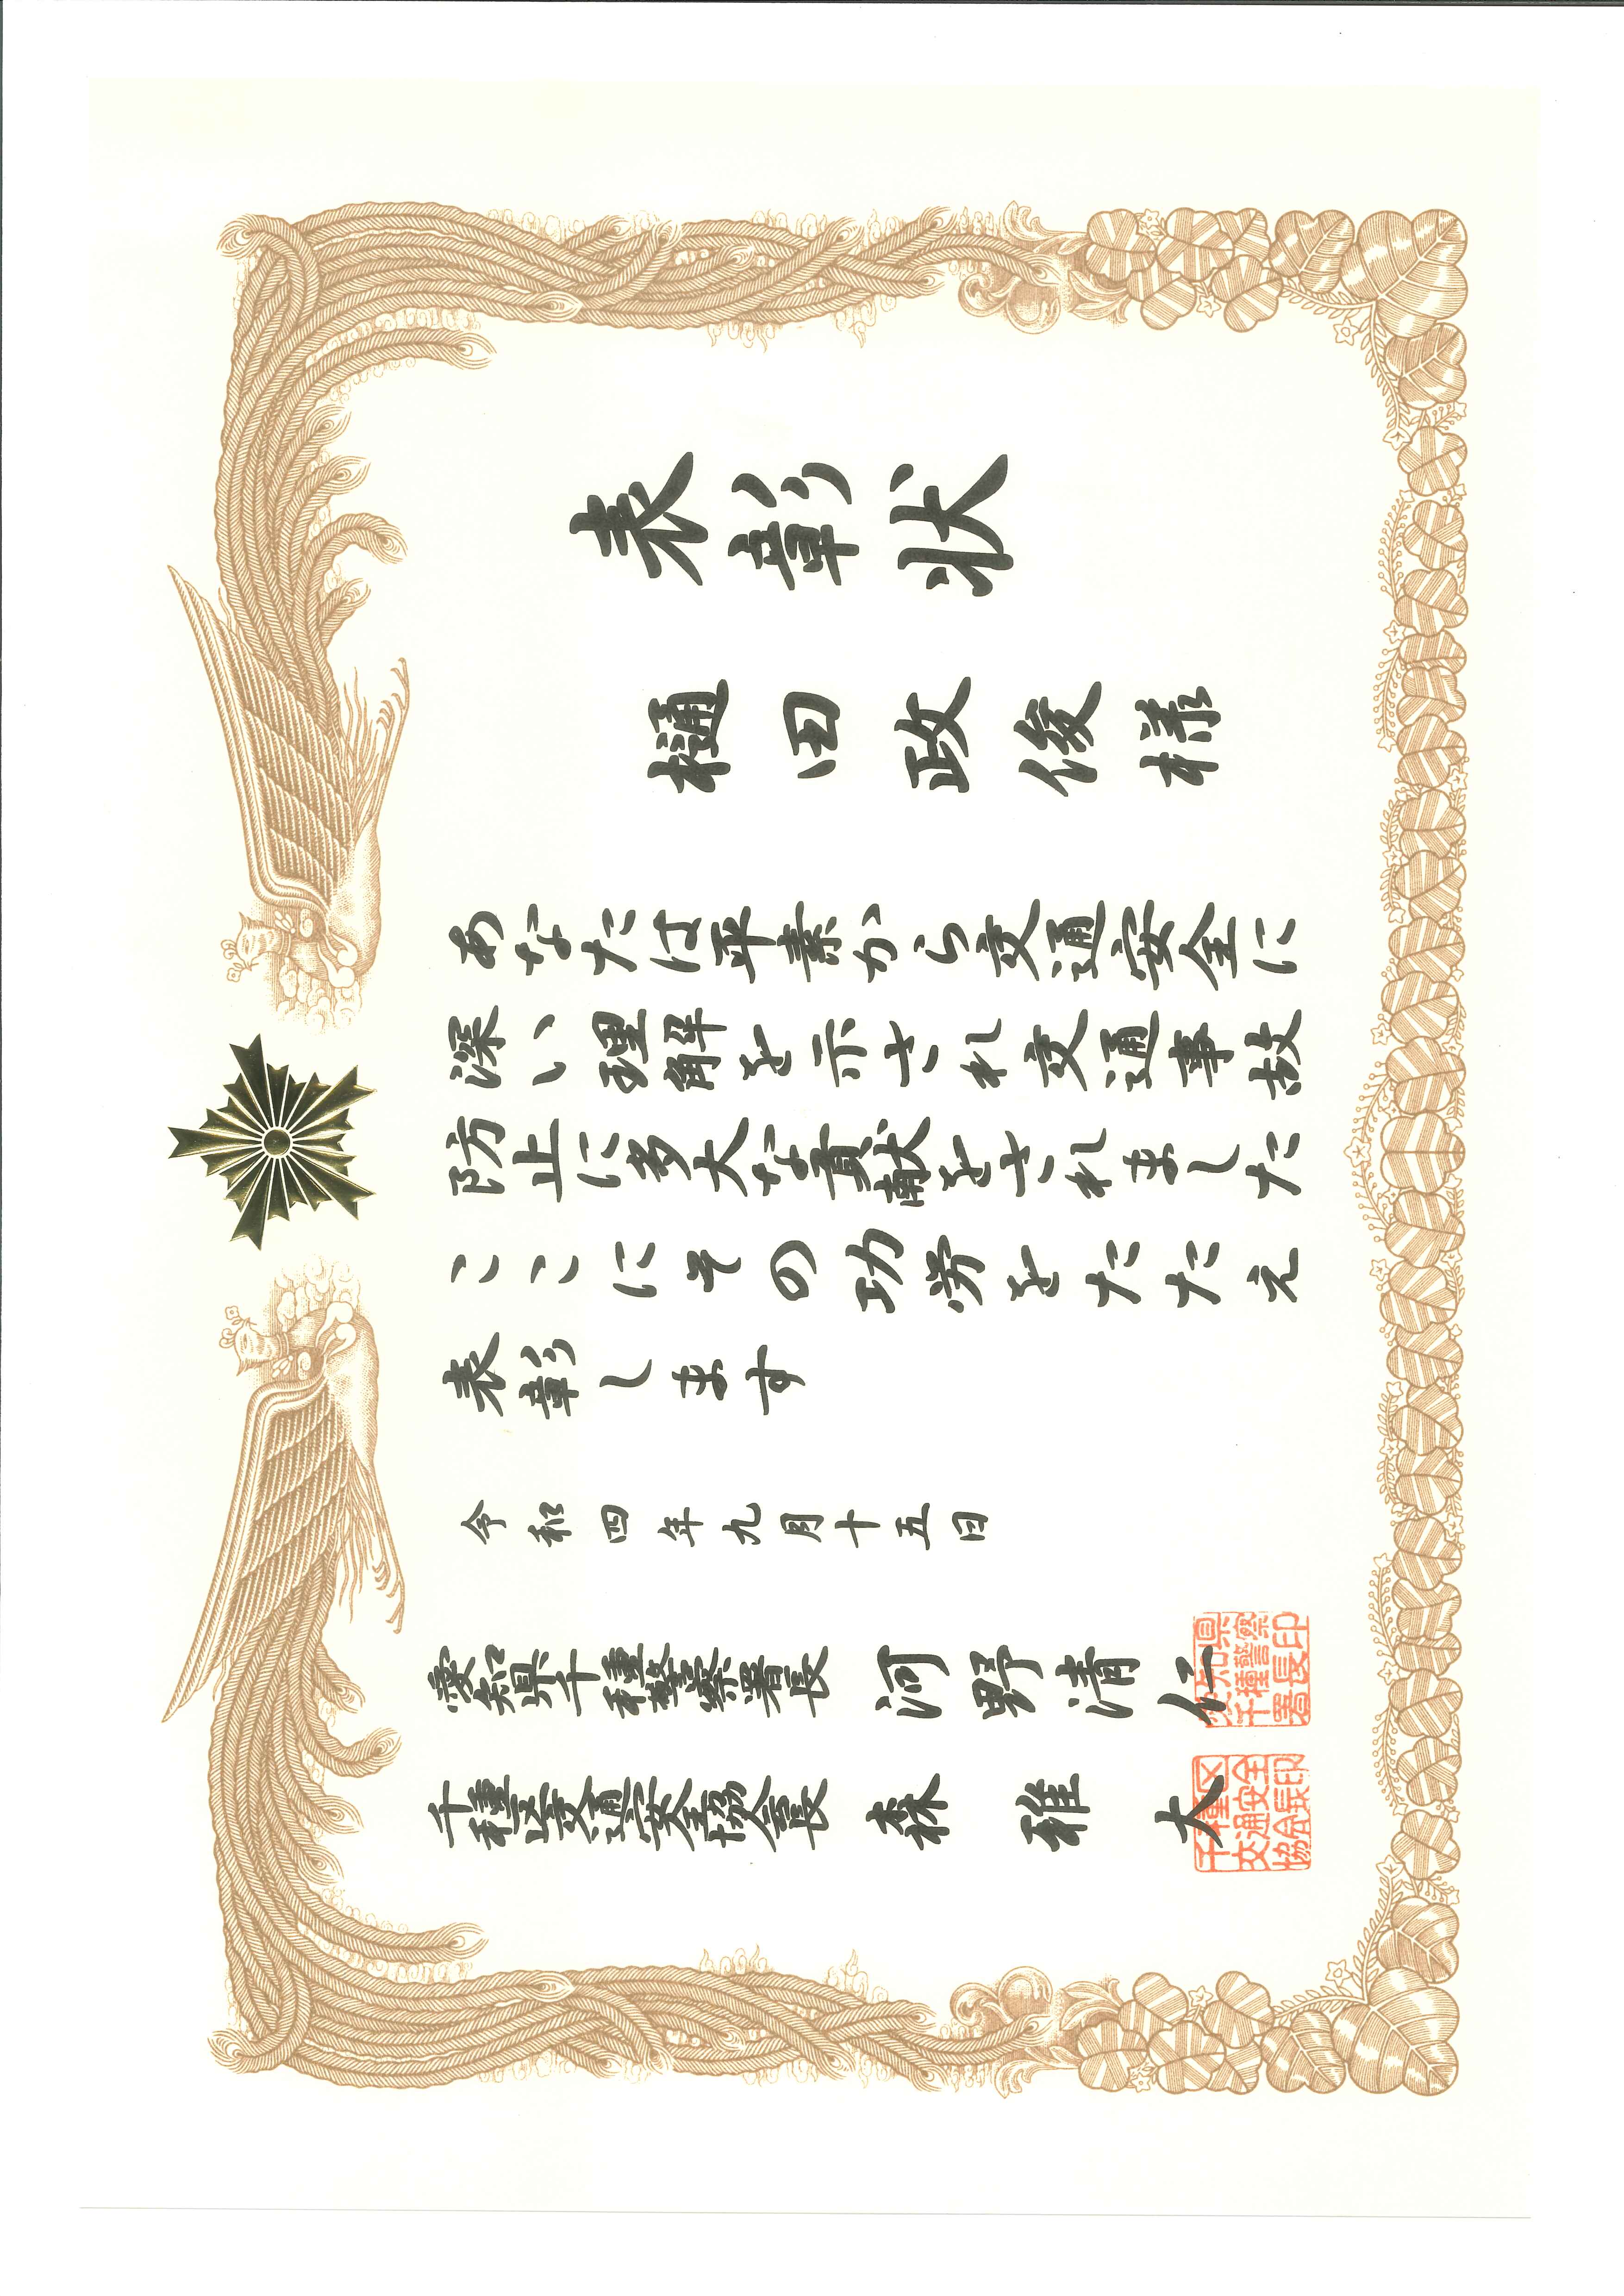 表彰状
樋田政俊様
あなたは平素から交通安全に
深い理解を示され交通事故
防止に多大な貢献をされました
ここにその功労をたたえ
表彰します
令和四年九月十五日
愛知県千種警察署長 河野清仁
愛知県千種警察署長印
千種区交通安全協会長 森雅大
千種区交通安全協会長印